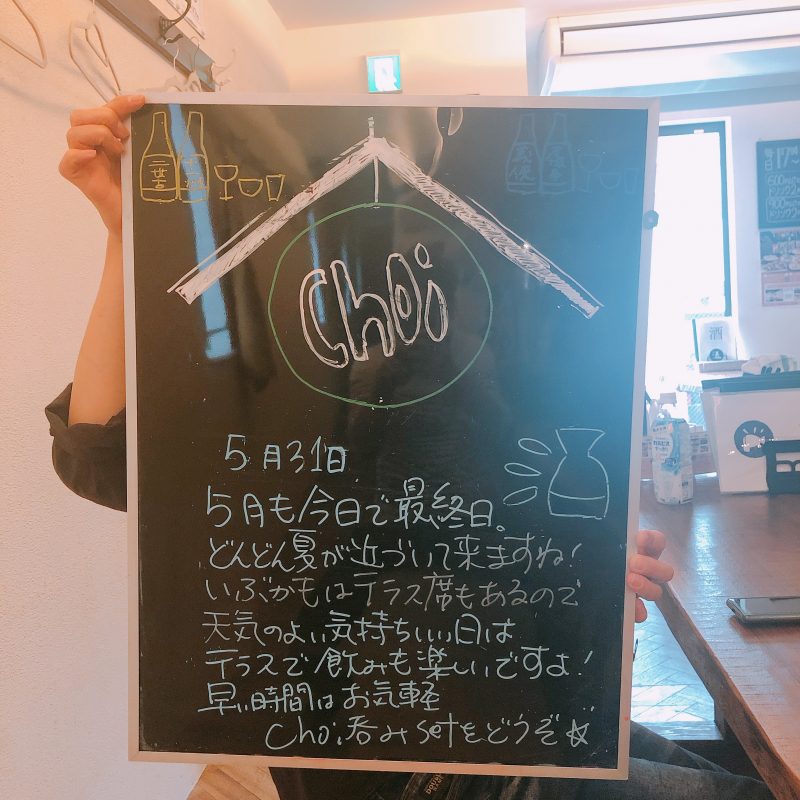 Choi
5月31日
5月も今日で最終日。
どんどん夏が近づいて来ますね!
いぶかもはテラス席もあるので
天気のよい気持ちいい日は
テラスで飲みも楽しいですよ!
早い時間はお気軽
choi呑みsetをどうぞ☆
酒